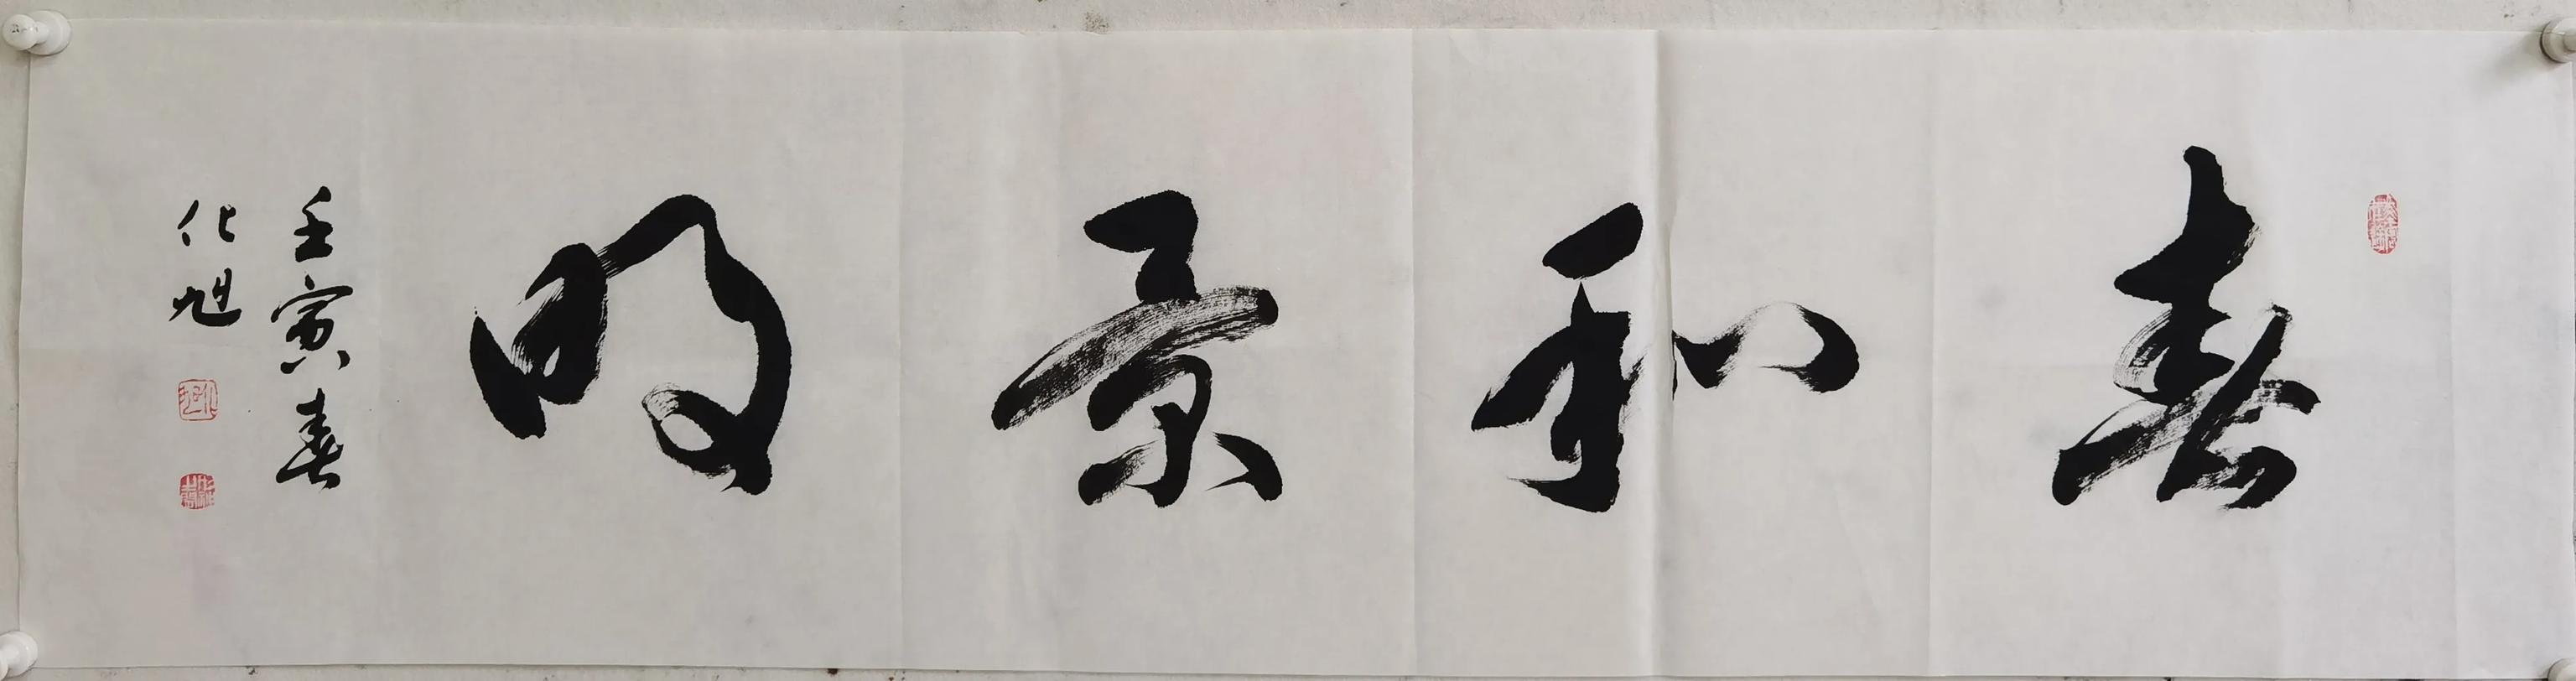 春和景明
壬寅春
化旭